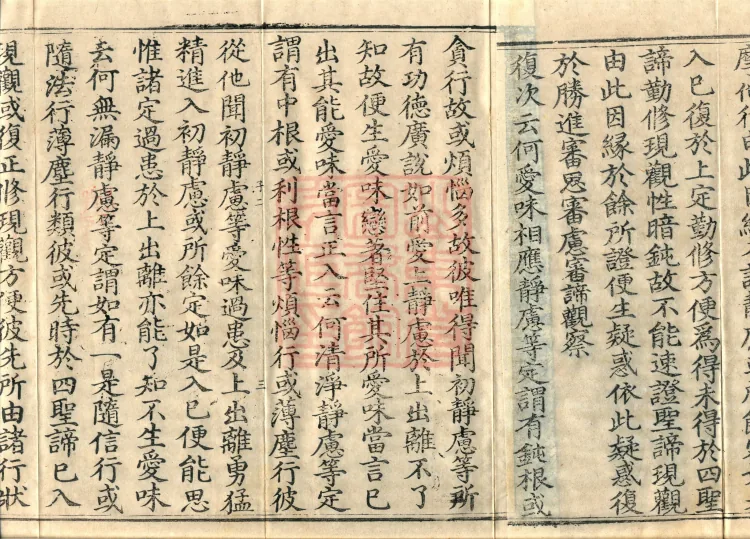 入已復於上定勤修方便爲得未得於四聖
諦勤修現觀性暗鈍故不能速證聖諦現觀
由此因緣於餘所證便生疑惑依此疑惑復
於勝進審思審慮審諦觀察
復次云何愛味相應靜慮等定謂有鈍根或
貪行故或煩惱多故彼唯得聞初靜慮等所
有功德廣說如前愛上靜慮於上出離不了
知故便生愛味戀著堅住其所愛味當言已
出其能愛味當言正入云何清淨靜慮等定
謂有中根或利根性等煩惱行或薄塵行彼
從他聞初靜慮等愛味過患及上出離勇猛
精進入初靜慮或所餘定如是入已便能思
惟諸定過患於上出離亦能了知不生愛味
云何無漏靜慮等定謂如有一是隨信行或
隨法行薄塵行類彼或先時於四聖諦已入
現觀或復正修現觀方便彼先所由諸行狀